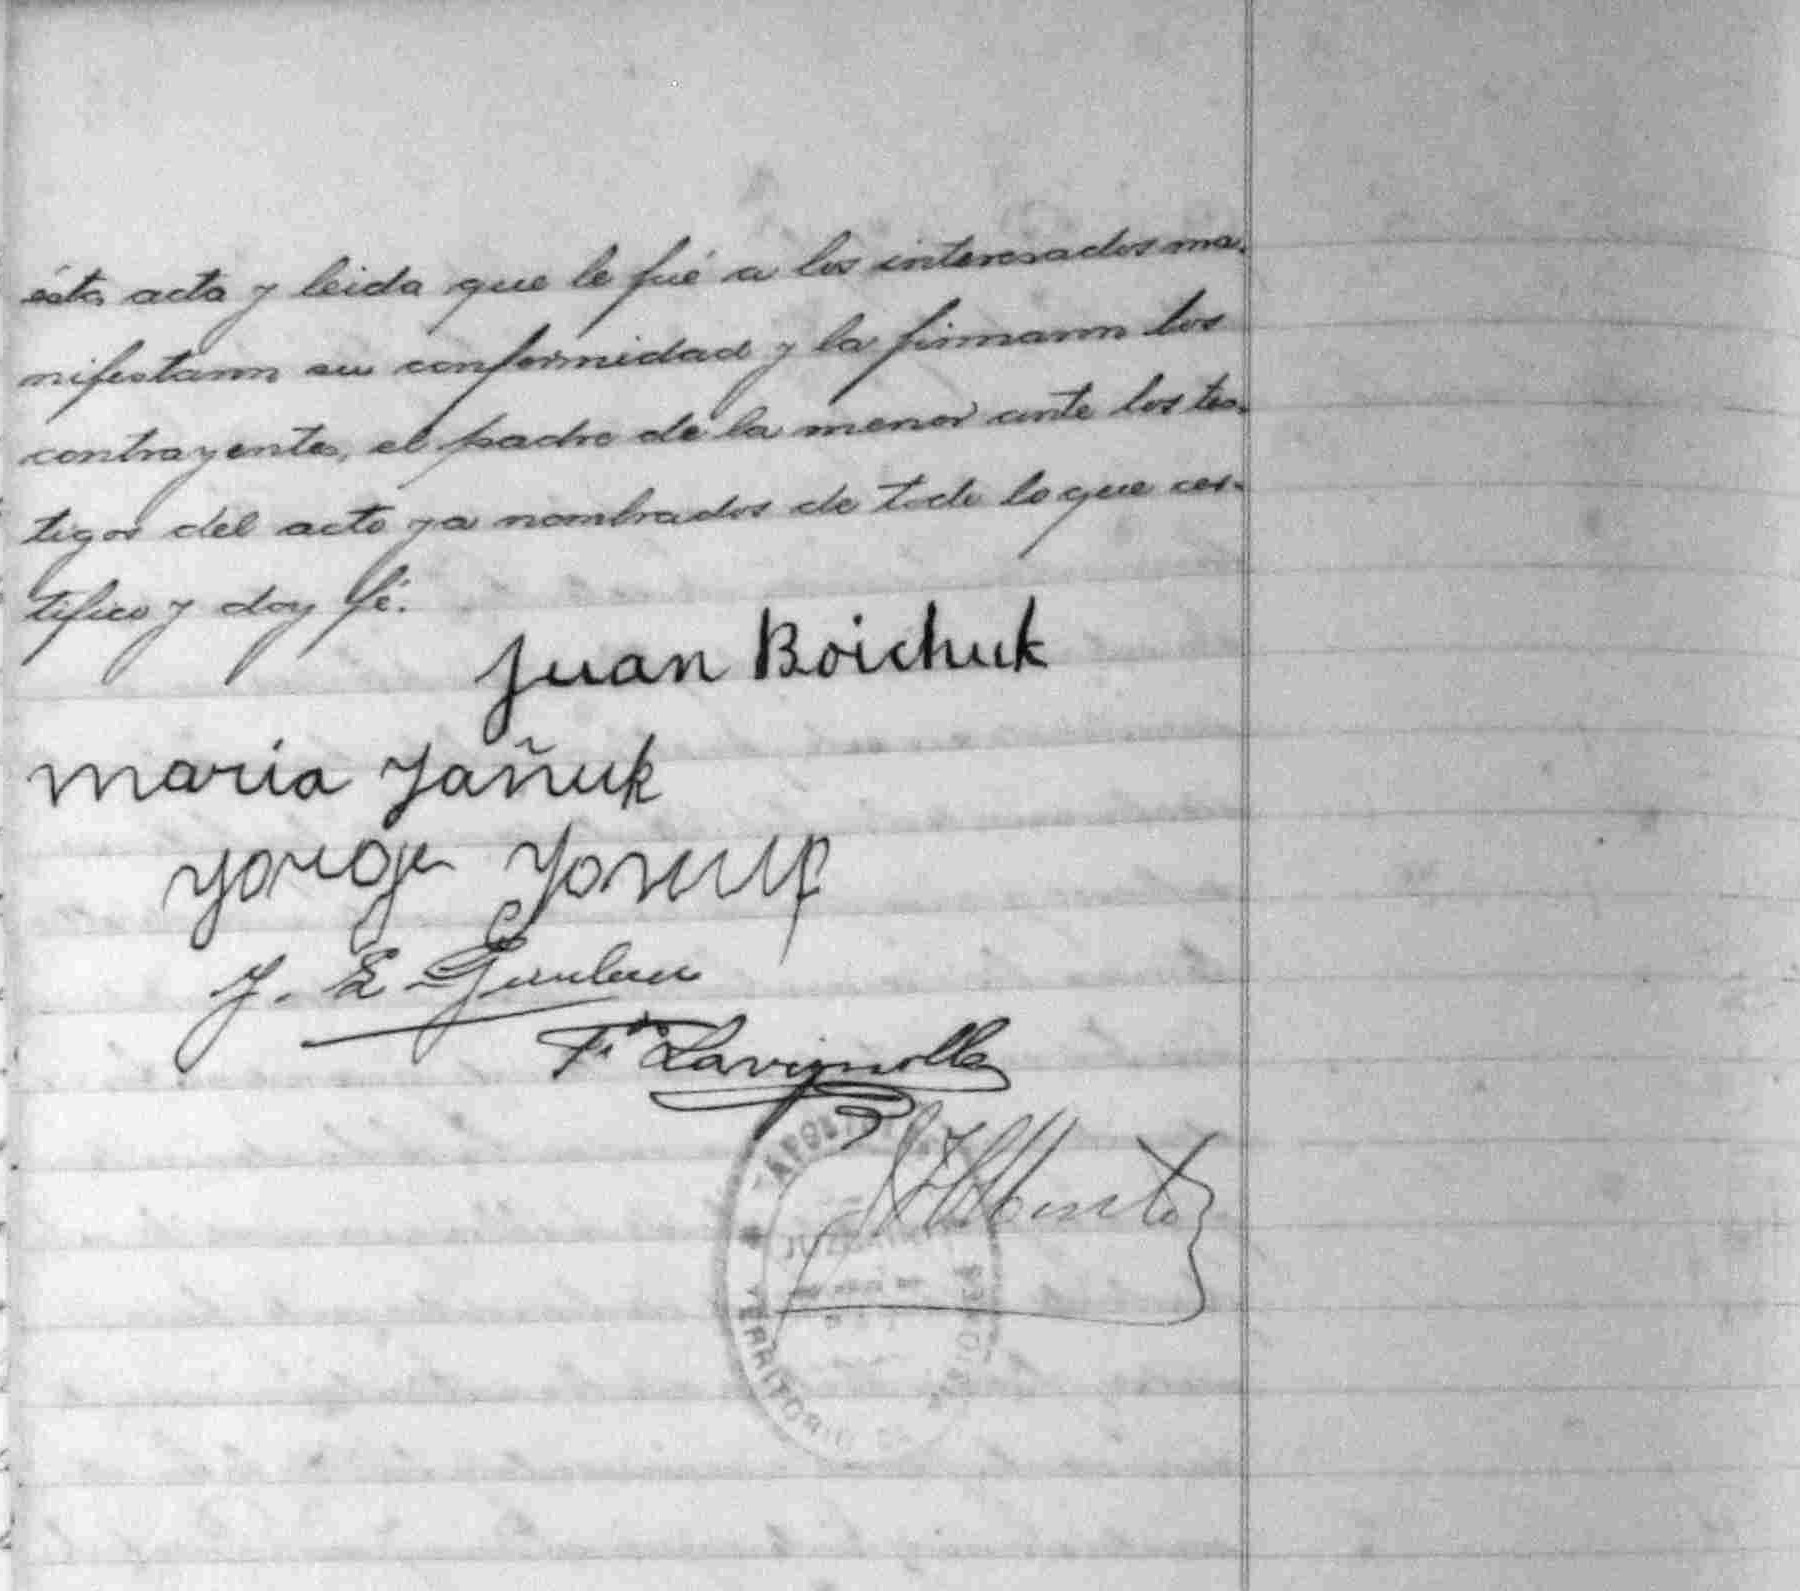 ésta acta y leida que le fué a los interesados ma-
nifestaron su conformidad y la firmaron los
contrayentes, el padre de la menor ante los tes-
tigos del acto ya nombrados de todo lo que cer-
tifico y doy fé.
Juan Boichuk
maria Jañuk
Yorge
J. E.
F. do Lavignolle
APOSTOLES
JUZGADO
TERRITORIO DE MISIONES